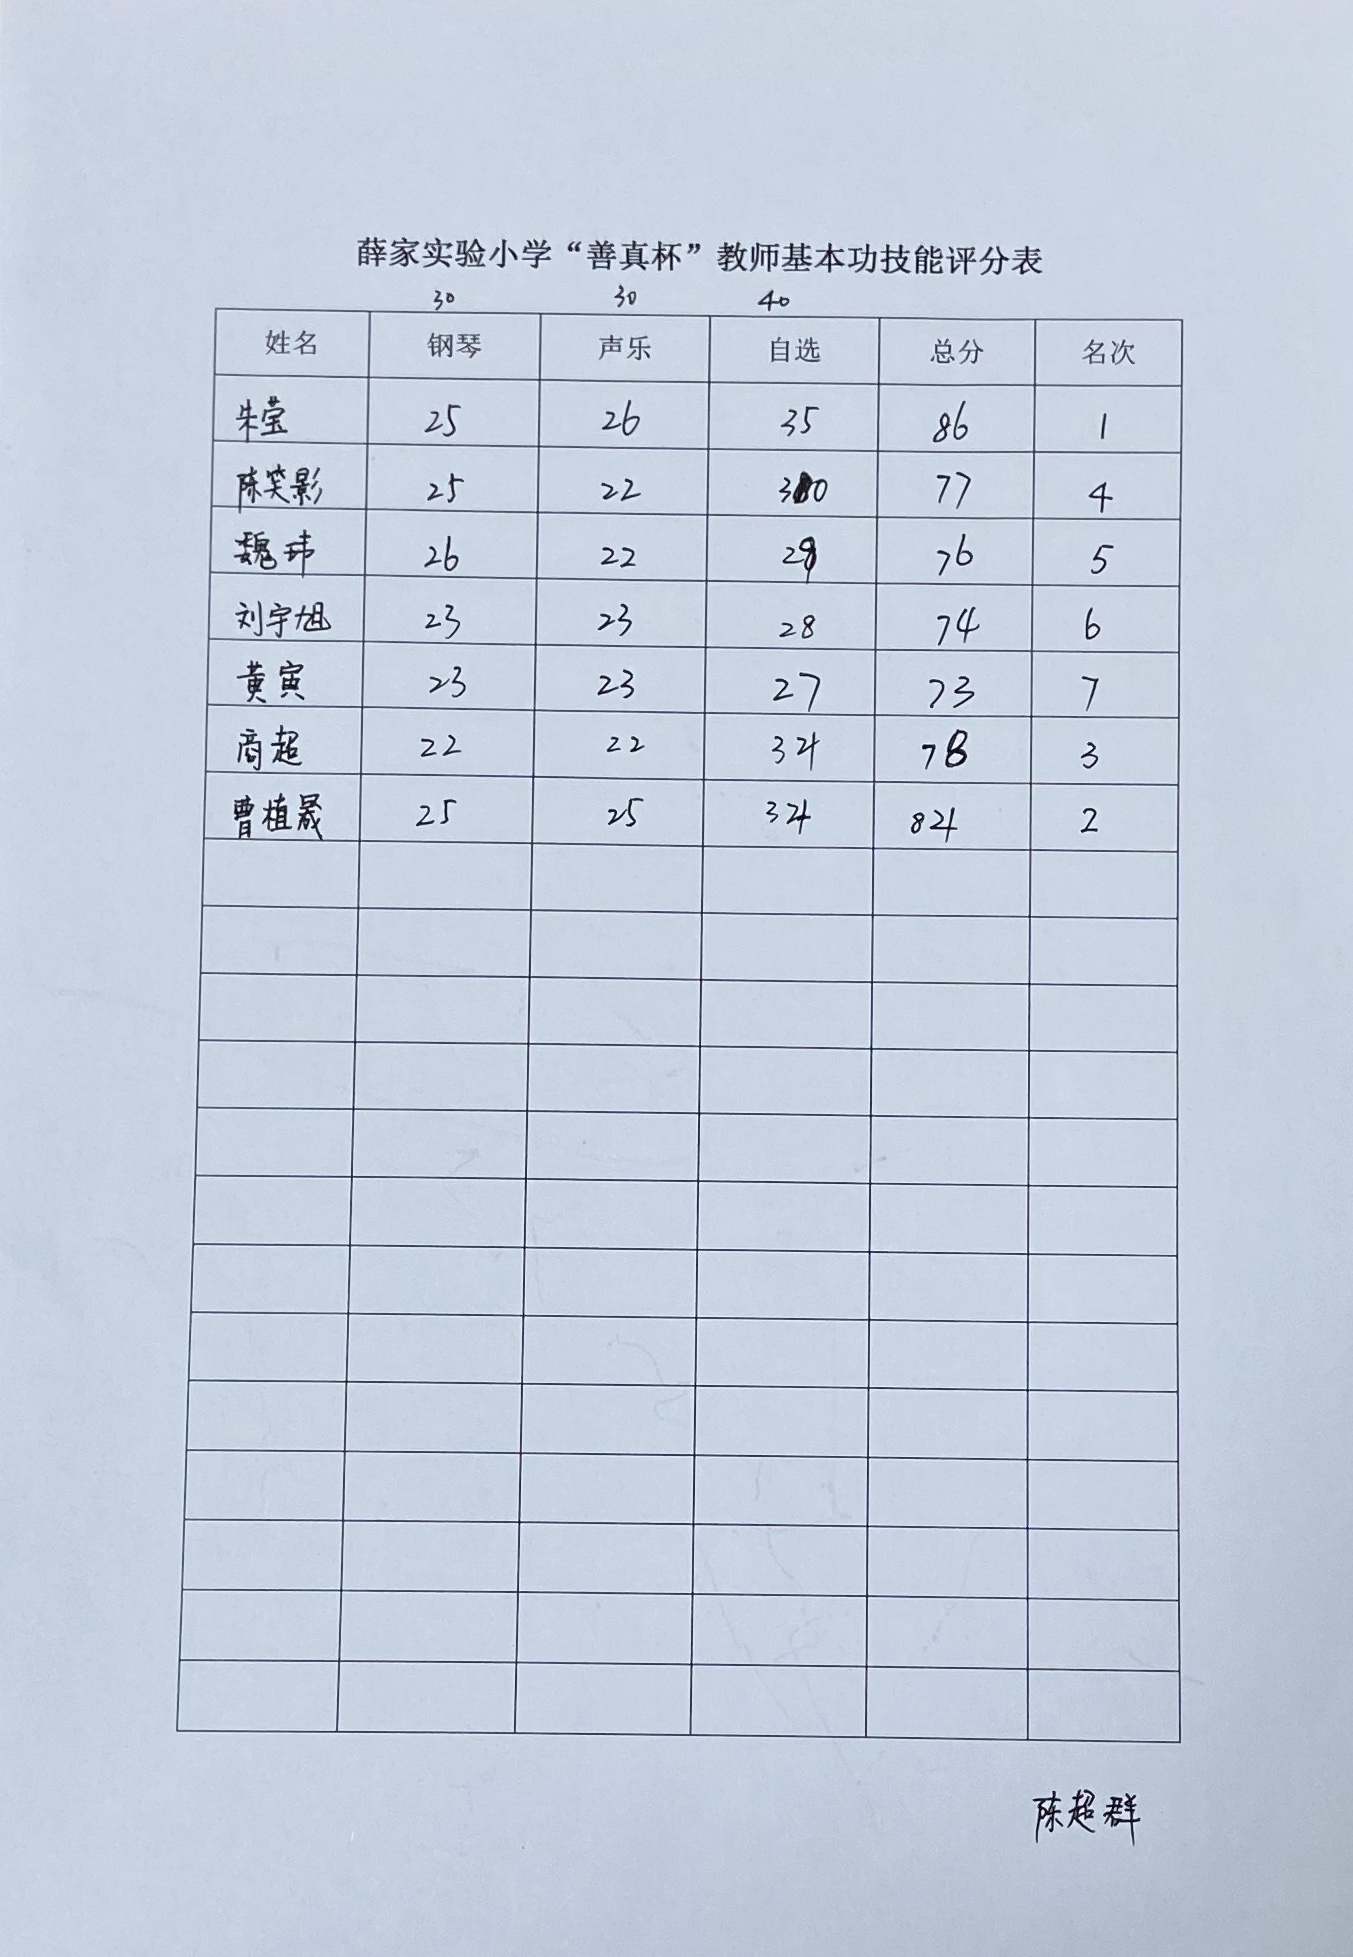 薛家实验小学“善真杯”教师基本功技能评分表
30 30 40
姓名 钢琴 声乐 自选 总分 名次
朱莹 25 26 35 86 1
陈笑影 25 22 30 77 4
魏玮 26 22 28 76 5
刘宇旭 23 23 28 74 6
黄寅 23 23 27 73 7
商超 22 22 34 78 3
曹植晟 25 25 34 84 2
陈超群